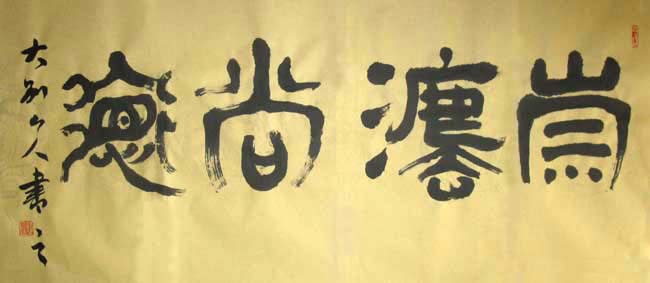 崇灋尚德
大别山人書之